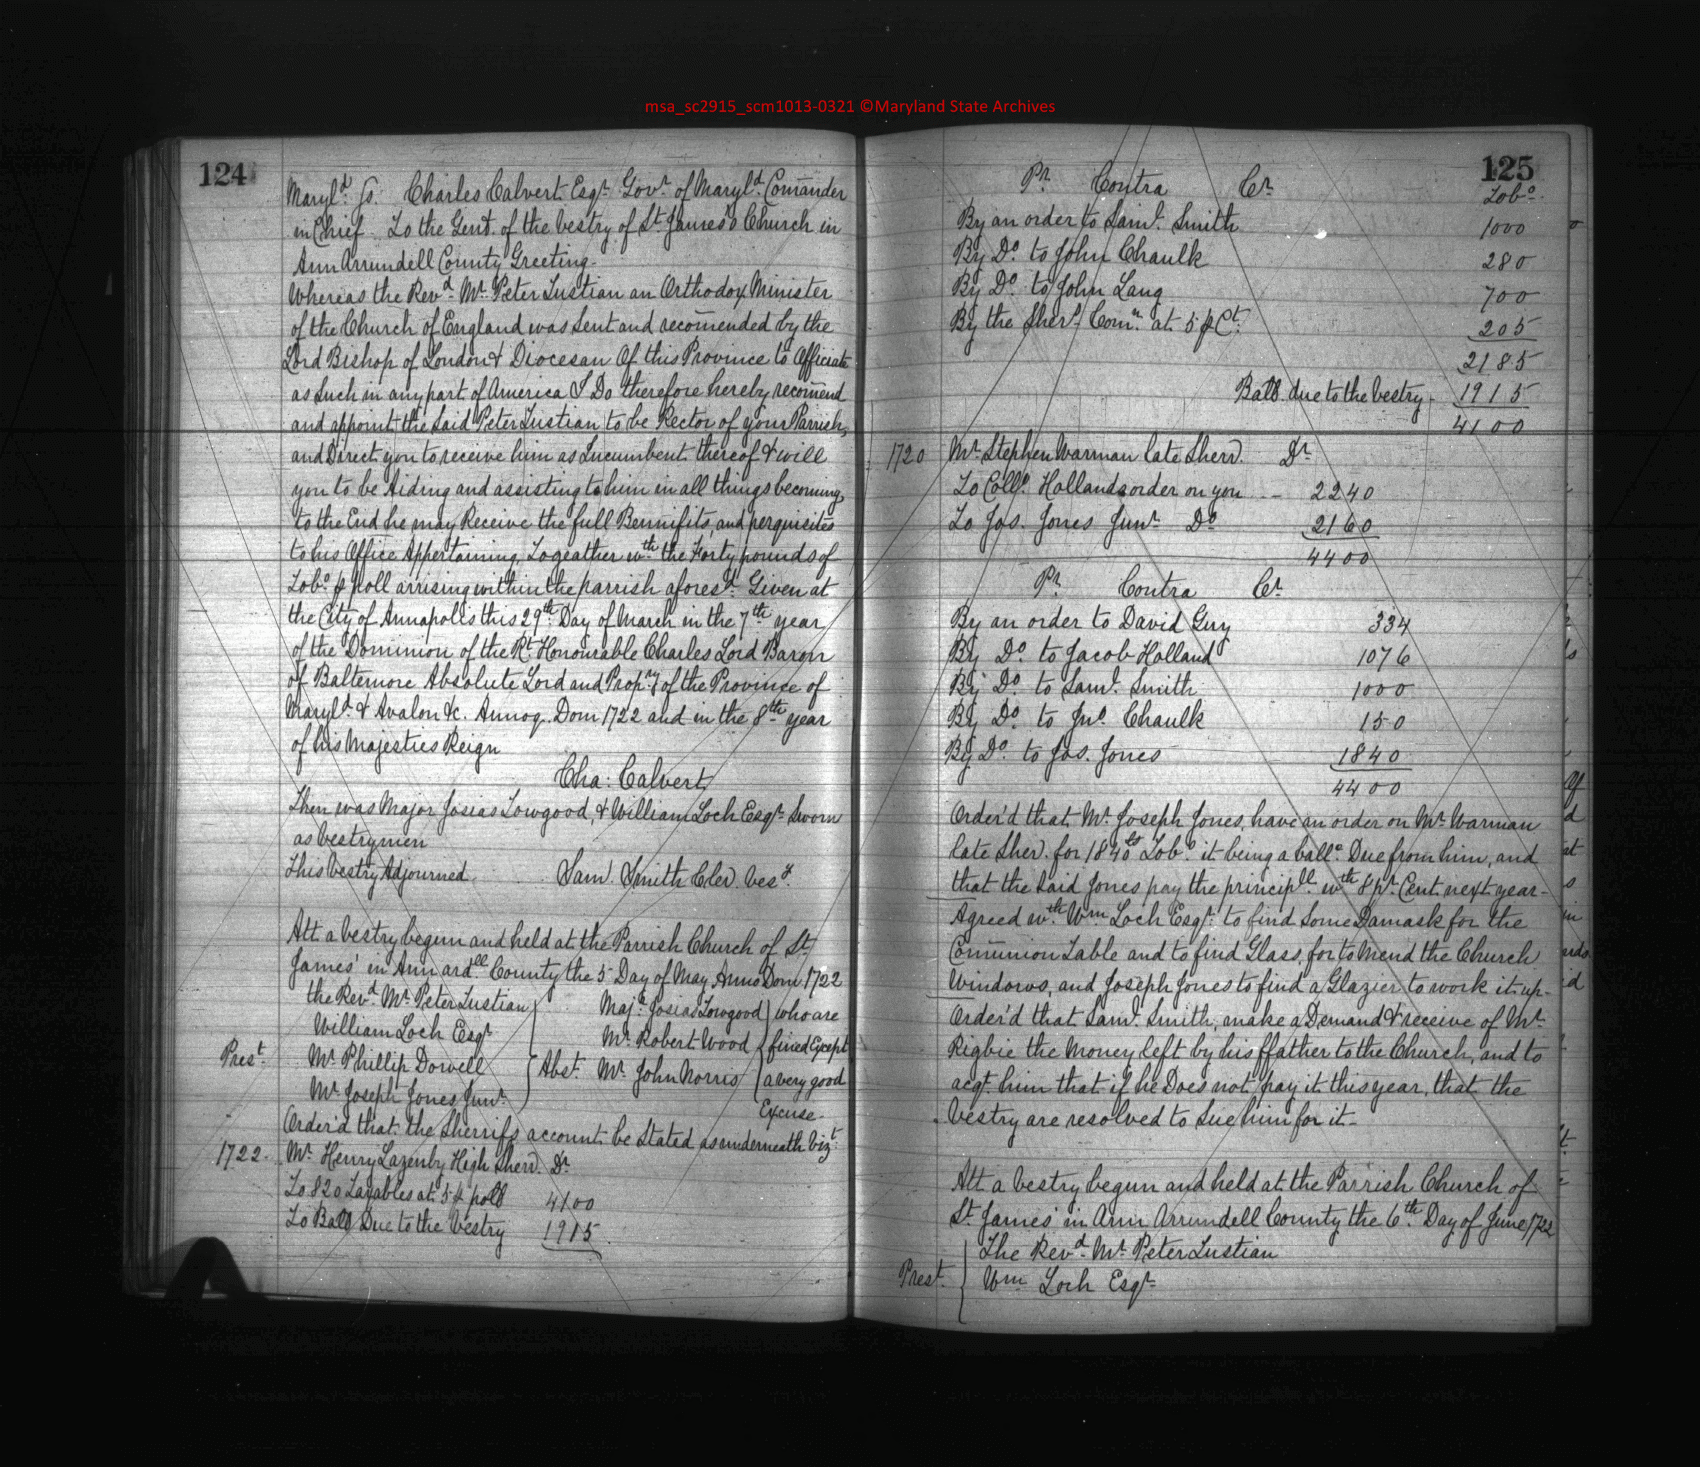 msa_sc2915_scm1013-0321 ©Maryland State Archives
124
Maryld. Ss. Charles Calvert Esqr. Govr. of Maryld. Comander
in Chief To the Gent. of the vestry of St. James's Church in
Ann Arrundell County Greeting.
Whereas the Revd. Mr. Peter Tustian an Orthodox Minister
of the Church of England was Sent and recomended by the
Lord Bishop of London & Diocesan Of this Province to Officiate
as Such in any part of America I Do therefore hereby recomend
and appoint the Said Peter Tustian to be Rector of your Parrish,
and Direct you to receive him as Incumbent thereof & will
you to be Aiding and assisting to him in all things becoming,
to the End he may Receive the full Bennifits, and perquisites
to his Office Appertaining, Togeather wth the Forty pounds of
Tobo. ⅌ poll arrising within the parrish aforesd. Given at
the City of Annapolis this 29th Day of March in the 7th year
of the Dominion of the Rt. Honourable Charles Lord Baron
of Baltemore Absolute Lord and Propry of the Province of
Maryld. & Avalon &c. Annoq. Dom 1722 and in the 8th year
of his Majesties Reign
Cha: Calvert
Then was Major Josias Towgood, & William Loch Esqr. Sworn
as vestrymen
This vestry Adjourned Sam. Smith Cler. Vesy.
Att a vestry begun and held at the Parrish Church of St.
James' in Ann ardll County the 5 Day of May Anno Dom 1722
Prest.
the Revd. Mr. Peter Tustian
William Loch Esqr.
Mr. Phillip Dowell
Mr. Joseph Jones Junr.
Abst.
Majr. Josias Towgood
Mr. Robert Wood
Mr. John Norris
who are
fined Except
a very good
Excuse.
Order'd that the Sherrifs account be Stated as underneath Vizt.
1722. Mr. Henry Lazenby High Sherr. Dr.
To 820 Taxables at 5 ⅌ poll 4100
To Ball Due to the Vestry 1915
125
Pr. Contra Cr. Tobo.
By an order to Saml. Smith 1000
By Do. to John Chaulk 280
By Do. to John Lang 700
By the Sherf. Comn. at 5 ⅌ Ct. 205
2185
Ball. due to the vestry - 1915
4100
1720 Mr. Stephen Warman late Sherr. Dr.
To Collo. Hollands order on you -- 2240
To Jos. Jones Junr. Do 2160
4400
Pr. Contra Cr.
By an order to David Guy 334
By Do. to Jacob Holland 1076
By Do. to Saml. Smith 1000
By Do. to Jno. Chaulk 150
By Do. to Jos. Jones 1840
4400
Order'd that Mr. Joseph Jones, have an order on Mr. Warman
late Sher. for 1840lb Tobo. it being a balla. Due from him, and
that the Said Jones pay the principll. wth 8 pr. Cent next year -
Agreed wth Wm Loch Esqr. to find Some Damask for the
Comunion Table and to find Glass, for to mend the Church
Windows, and Joseph Jones to find a Glazier to work it up -
Order'd that Saml. Smith, make a Demand & receive of Mr.
Rigbie the money left by his ffather to the Church, and to
acqt. him that if he Does not pay it this year, that the
Vestry are resolved to Sue him for it -
Att a vestry begun and held at the Parrish Church of
St. James' in Ann Arrundell County the 6th Day of June 1722
Prest.
The Revd. Mr. Peter Tustian
Wm Loch Esqr.